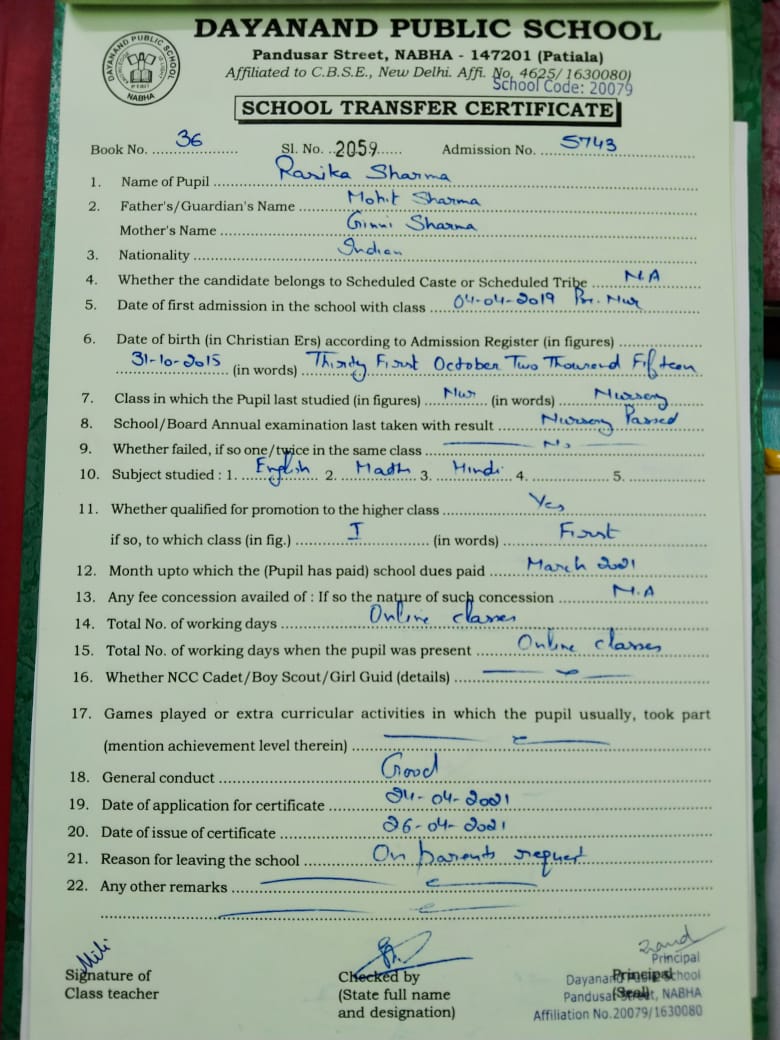 DAYANAND PUBLIC SCHOOL
DAYANAND PUBLIC SCHOOL NABHA
Pandusar Street, NABHA - 147201 (Patiala)
Affiliated to C.B.S.E., New Delhi. Affi. No. 4625/1630080)
School Code: 20079
SCHOOL TRANSFER CERTIFICATE
Book No. 36 Sl. No. 2059 Admission No. 5743
1. Name of Pupil Rasika Sharma
2. Father's/Guardian's Name Mohit Sharma
Mother's Name Ginni Sharma
3. Nationality Indian
4. Whether the candidate belongs to Scheduled Caste or Scheduled Tribe N.A
5. Date of first admission in the school with class 04-04-2019 Pre. Nur
6. Date of birth (in Christian Ers) according to Admission Register (in figures)
31-10-2015 (in words) Thirty First October Two Thousand Fifteen
7. Class in which the Pupil last studied (in figures) Nur (in words) Nursery
8. School/Board Annual examination last taken with result Nursery Passed
9. Whether failed, if so one/twice in the same class No
10. Subject studied : 1. English 2. Math 3. Hindi 4. 5.
11. Whether qualified for promotion to the higher class Yes
if so, to which class (in fig.) I (in words) First
12. Month upto which the (Pupil has paid) school dues paid March 2021
13. Any fee concession availed of : If so the nature of such concession N.A
14. Total No. of working days Online classes
15. Total No. of working days when the pupil was present Online classes
16. Whether NCC Cadet/Boy Scout/Girl Guid (details)
17. Games played or extra curricular activities in which the pupil usually, took part
(mention achievement level therein)
18. General conduct Good
19. Date of application for certificate 24-04-2021
20. Date of issue of certificate 26-04-2021
21. Reason for leaving the school On parents request
22. Any other remarks
Signature of
Class teacher
Checked by
(State full name
and designation)
Principal
(Seal)
Principal
Dayanand Public School
Pandusar Street, NABHA
Affiliation No.20079/1630080